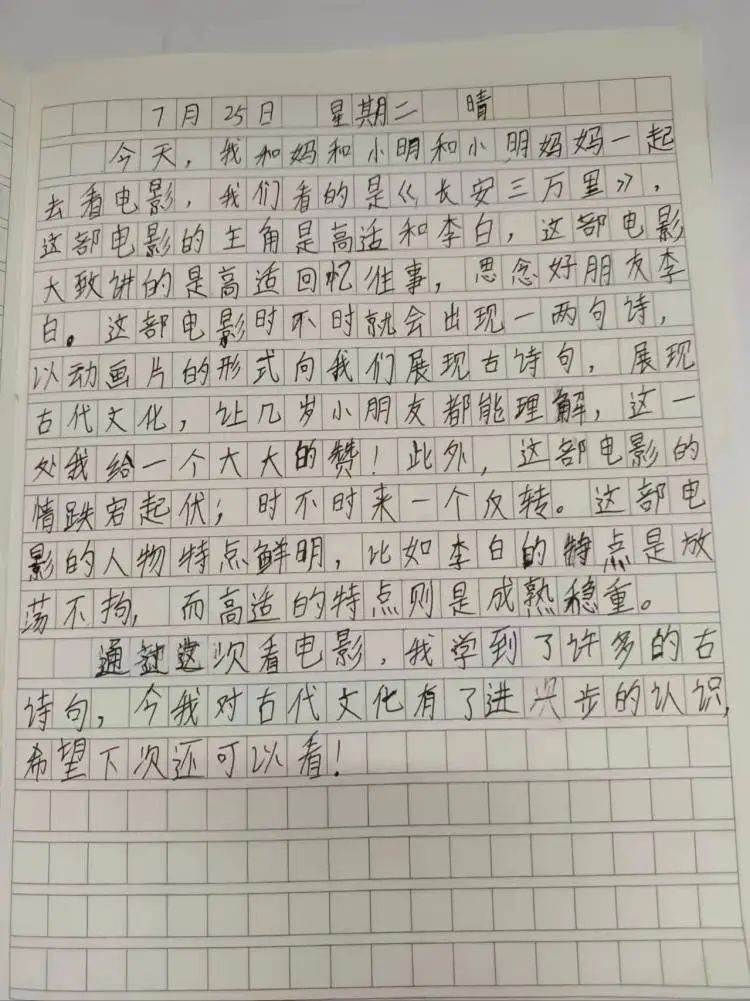 7月25日 星期二 晴
今天，我和妈和小明和小明妈妈一起
去看电影，我们看的是《长安三万里》，
这部电影的主角是高适和李白，这部电影
大致讲的是高适回忆往事，思念好朋友李
白。这部电影时不时就会出现一两句诗，
以动画片的形式向我们展现古诗句，展现
古代文化，让几岁小朋友都能理解，这一
处我给一个大大的赞！此外，这部电影的
情跌宕起伏；时不时来一个反转。这部电
影的人物特点鲜明，比如李白的特点是放
荡不拘，而高适的特点则是成熟稳重。
通过这次看电影，我学到了许多的古
诗句，令我对古代文化有了进步的认识，
希望下次还可以看！